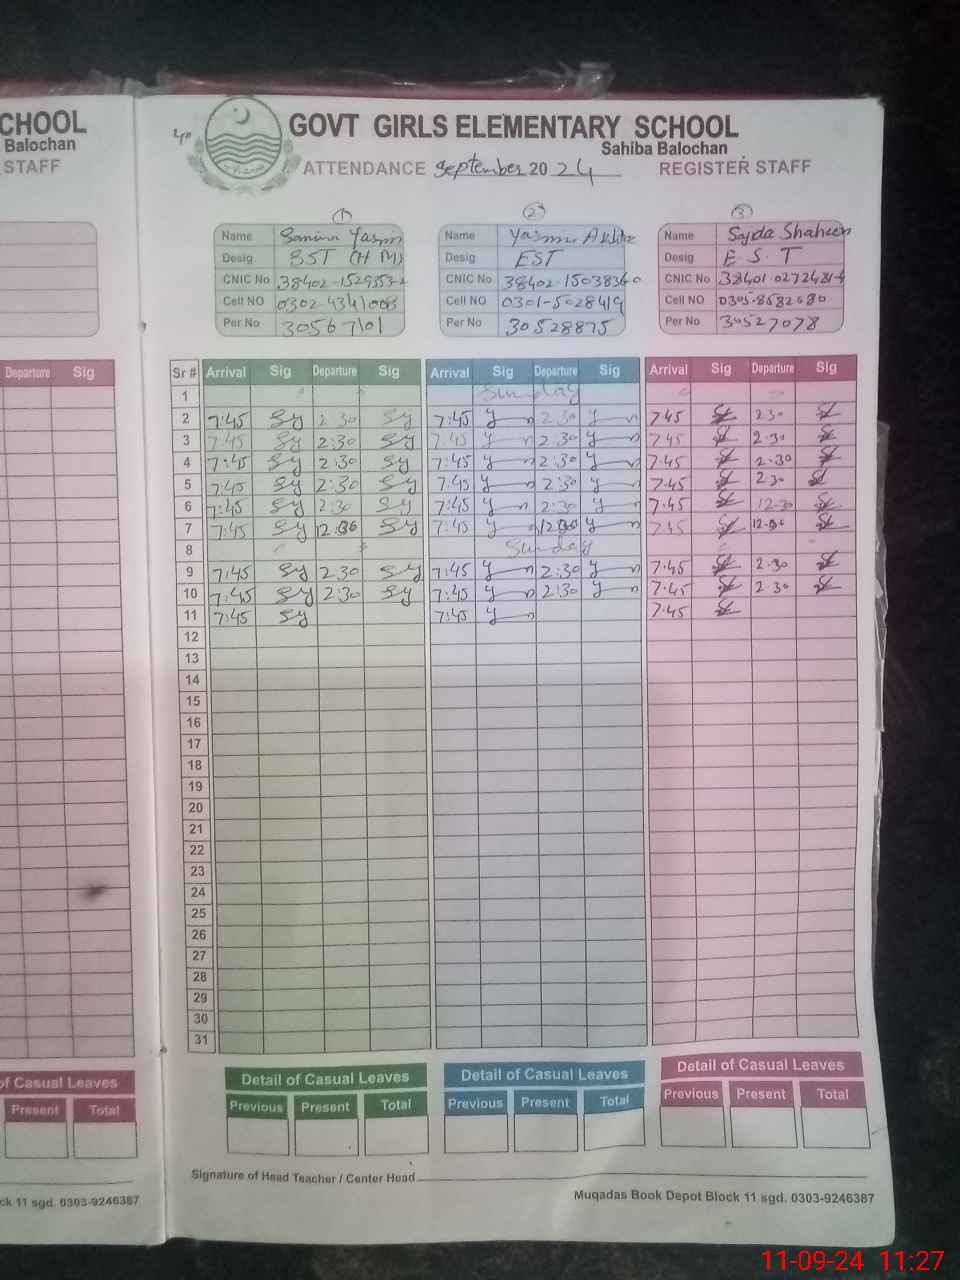 CHOOL
Balochan
STAFF
GOVT GIRLS ELEMENTARY SCHOOL
Sahiba Balochan
ATTENDANCE September 2024 REGISTER STAFF
1 2 3
Name Yasmin Name Yasmin Akhtar Name Sajda Shaheen
Desig SST (H M) Desig EST Desig E S T
CNIC No CNIC No 38402-15038360 CNIC No
Cell NO Cell NO 0301-5028419 Cell NO 0305-8682680
Per No 30567101 Per No 30528875 Per No 30527078
Departure Sig Sr # Arrival Sig Departure Sig Arrival Sig Departure Sig Arrival Sig Departure Sig
1 Sunday
2 7:45 Sy 2:30 Sy 7:45 2:30 7:45 2:30
3 7:45 Sy 2:30 Sy 7:45 2:30 7:45 2:30
4 7:45 Sy 2:30 Sy 7:45 2:30 7:45 2:30
5 7:45 Sy 2:30 Sy 7:45 2:30 7:45 2:30
6 7:45 Sy 2:30 Sy 7:45 2:30 7:45 12:30
7 7:45 Sy 12:00 Sy 7:45 12:00 7:45 12:00
8 Sunday
9 7:45 Sy 2:30 Sy 7:45 2:30 7:45 2:30
10 7:45 Sy 2:30 Sy 7:45 2:30 7:45 2:30
11 7:45 Sy 7:45 7:45
12
13
14
15
16
17
18
19
20
21
22
23
24
25
26
27
28
29
30
31
of Casual Leaves Detail of Casual Leaves Detail of Casual Leaves Detail of Casual Leaves
Present Total Previous Present Total Previous Present Total Previous Present Total
Signature of Head Teacher / Center Head
ck 11 sgd. 0303-9246387 Muqadas Book Depot Block 11 sgd. 0303-9246387
11-09-24 11:27